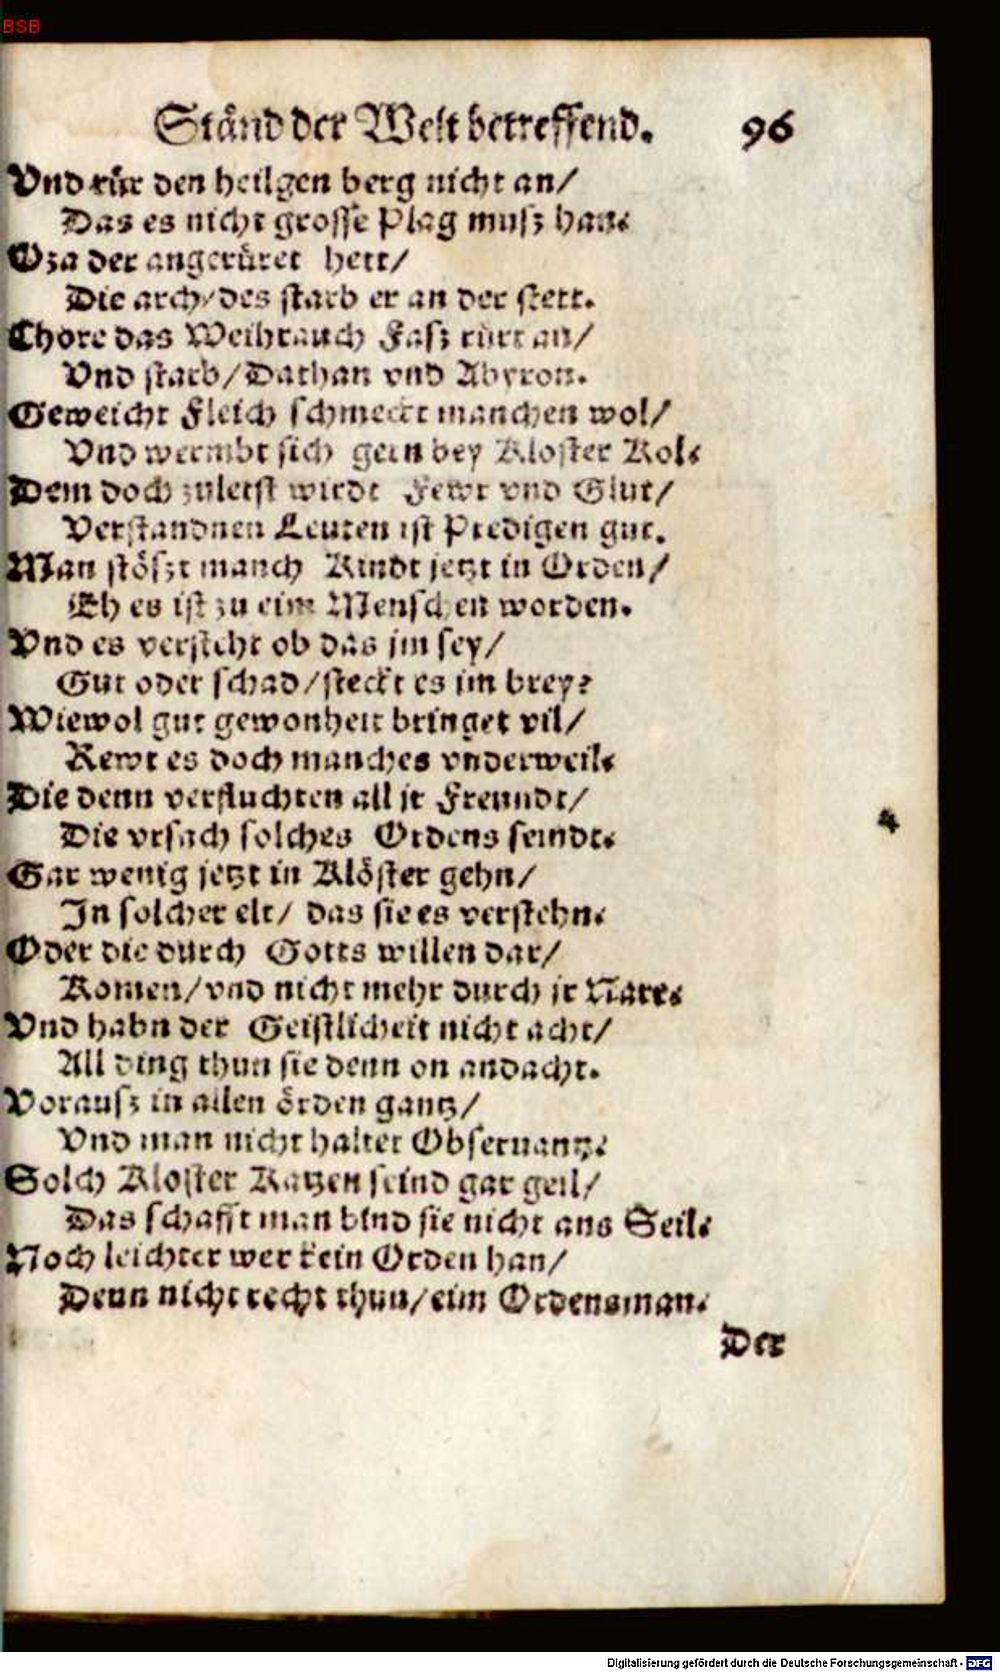 BSB
Ständ der Welt betreffend. 96
Vnd rür den heilgen berg nicht an/
Das es nicht grosse Plag musz han.
Oza der angerüret hett/
Die arch/des starb er an der stett.
Chore das Weihrauch Fasz rürt an/
Vnd starb/Dathan vnd Abyron.
Geweicht Fleich schmeckt manchen wol/
Vnd wermbt sich gern bey Kloster Kol.
Dem doch zuletst wirdt Fewr vnd Glut/
Verstandnen Leuten ist Predigen gut.
Man stöszt manch Kindt jetzt in Orden/
Eh es ist zu eim Menschen worden.
Vnd es versteht ob das jm sey/
Gut oder schad/steckt es jm brey?
Wiewol gut gewonheit bringet vil/
Rewt es doch manches vnderweil.
Die denn verfluchten all jr Freundt/
Die vrsach solches Ordens seindt.
Gar wenig jetzt in Klöster gehn/
In solcher elt/ das sie es verstehn.
Oder die durch Gotts willen dar/
Komen/vnd nicht mehr durch jr Nare.
Vnd habn der Geistlicheit nicht acht/
All ding thun sie denn on andacht.
Vorausz in allen örden gantz/
Vnd man nicht haltet Obseruantz.
Solch Kloster Katzen seind gar geil/
Das schafft man bind sie nicht ans Seil.
Noch leichter wer kein Orden han/
Denn nicht recht thun/eim Ordensman.
Der
Digitalisierung gefördert durch die Deutsche Forschungsgemeinschaft - DFG